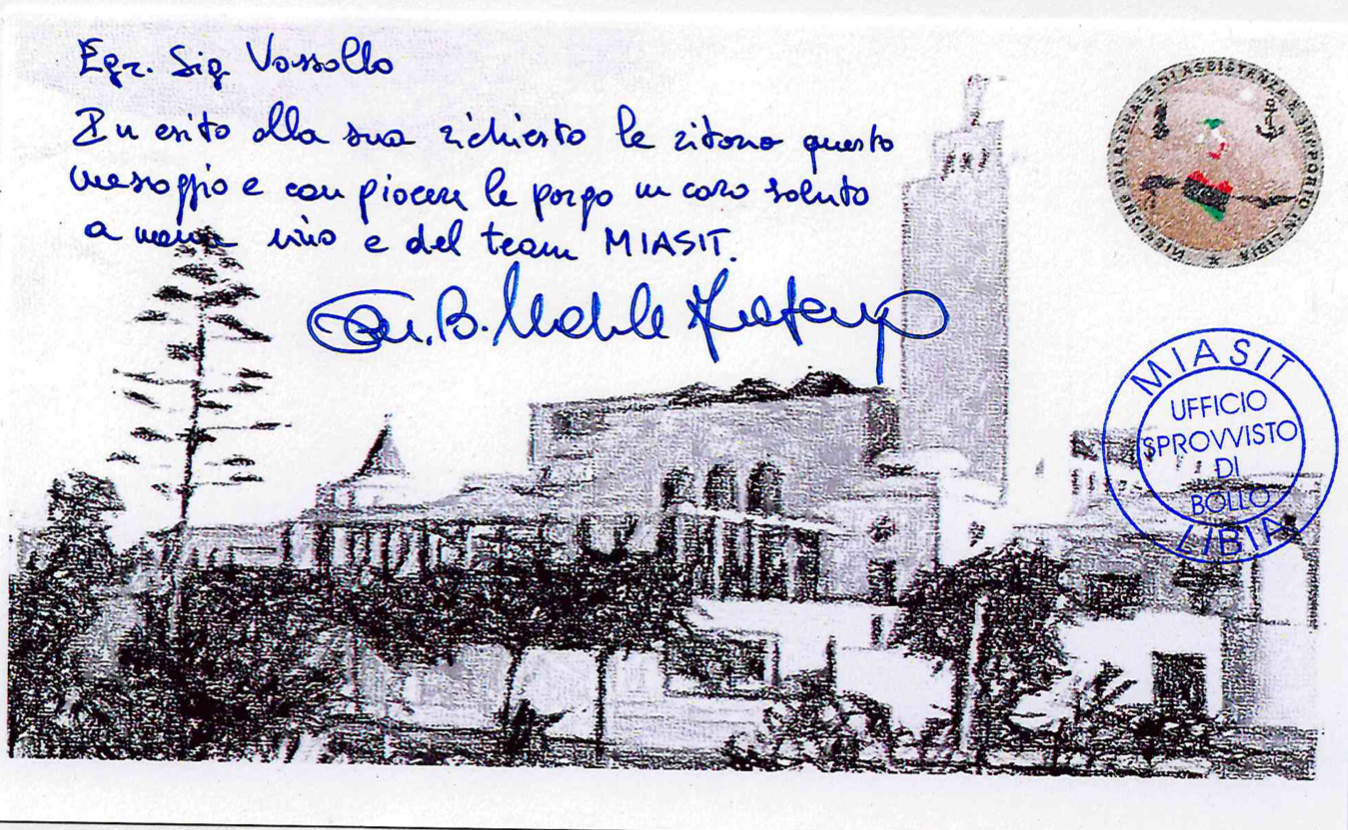 Egr. Sig. Vassallo
In esito alla sua richiesta le ritorno questo
messaggio e con piacere le porgo un caro saluto
a nome mio e del team MIASIT.
Gen. B. Michele
MISSIONE BILATERALE DI ASSISTENZA E SUPPORTO IN LIBIA
MIASIT
UFFICIO
SPROVVISTO
DI
BOLLO
LIBIA